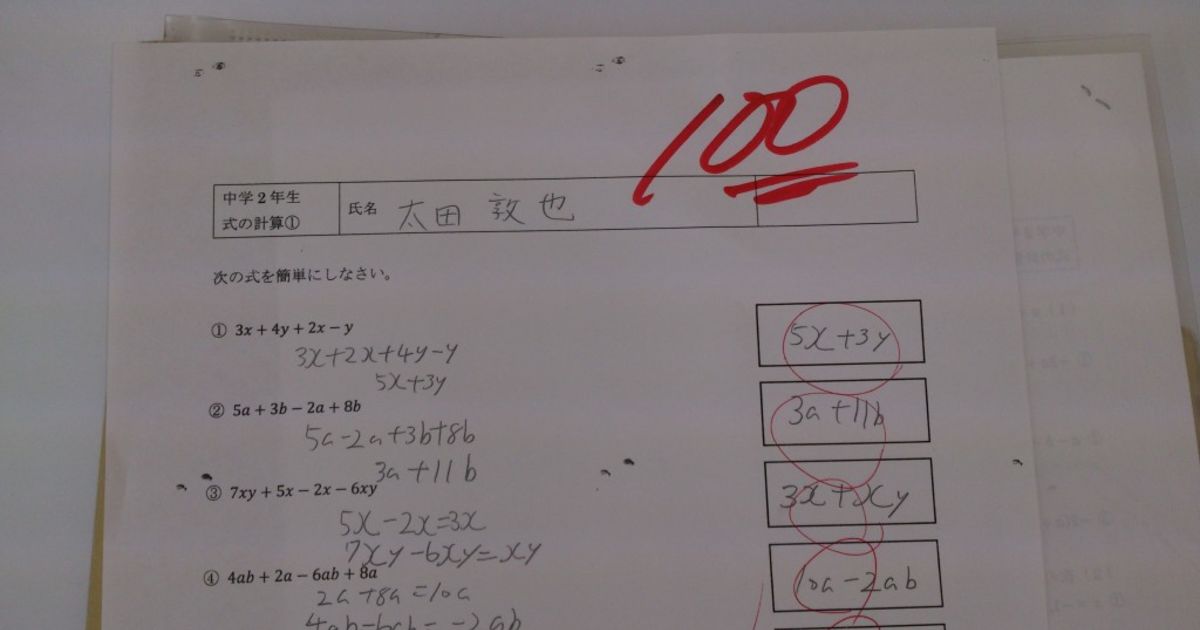 100
中学2年生
式の計算①
氏名 太田 敦也
次の式を簡単にしなさい。
① 3x + 4y + 2x − y
3x+2x+4y−y
5x+3y
5x+3y
② 5a + 3b − 2a + 8b
5a−2a+3b+8b
3a+11b
3a+11b
③ 7xy + 5x − 2x − 6xy
5x−2x=3x
7xy−6xy=xy
3x+xy
④ 4ab + 2a − 6ab + 8a
2a+8a=10a
4ab−6ab=−2ab
10a−2ab